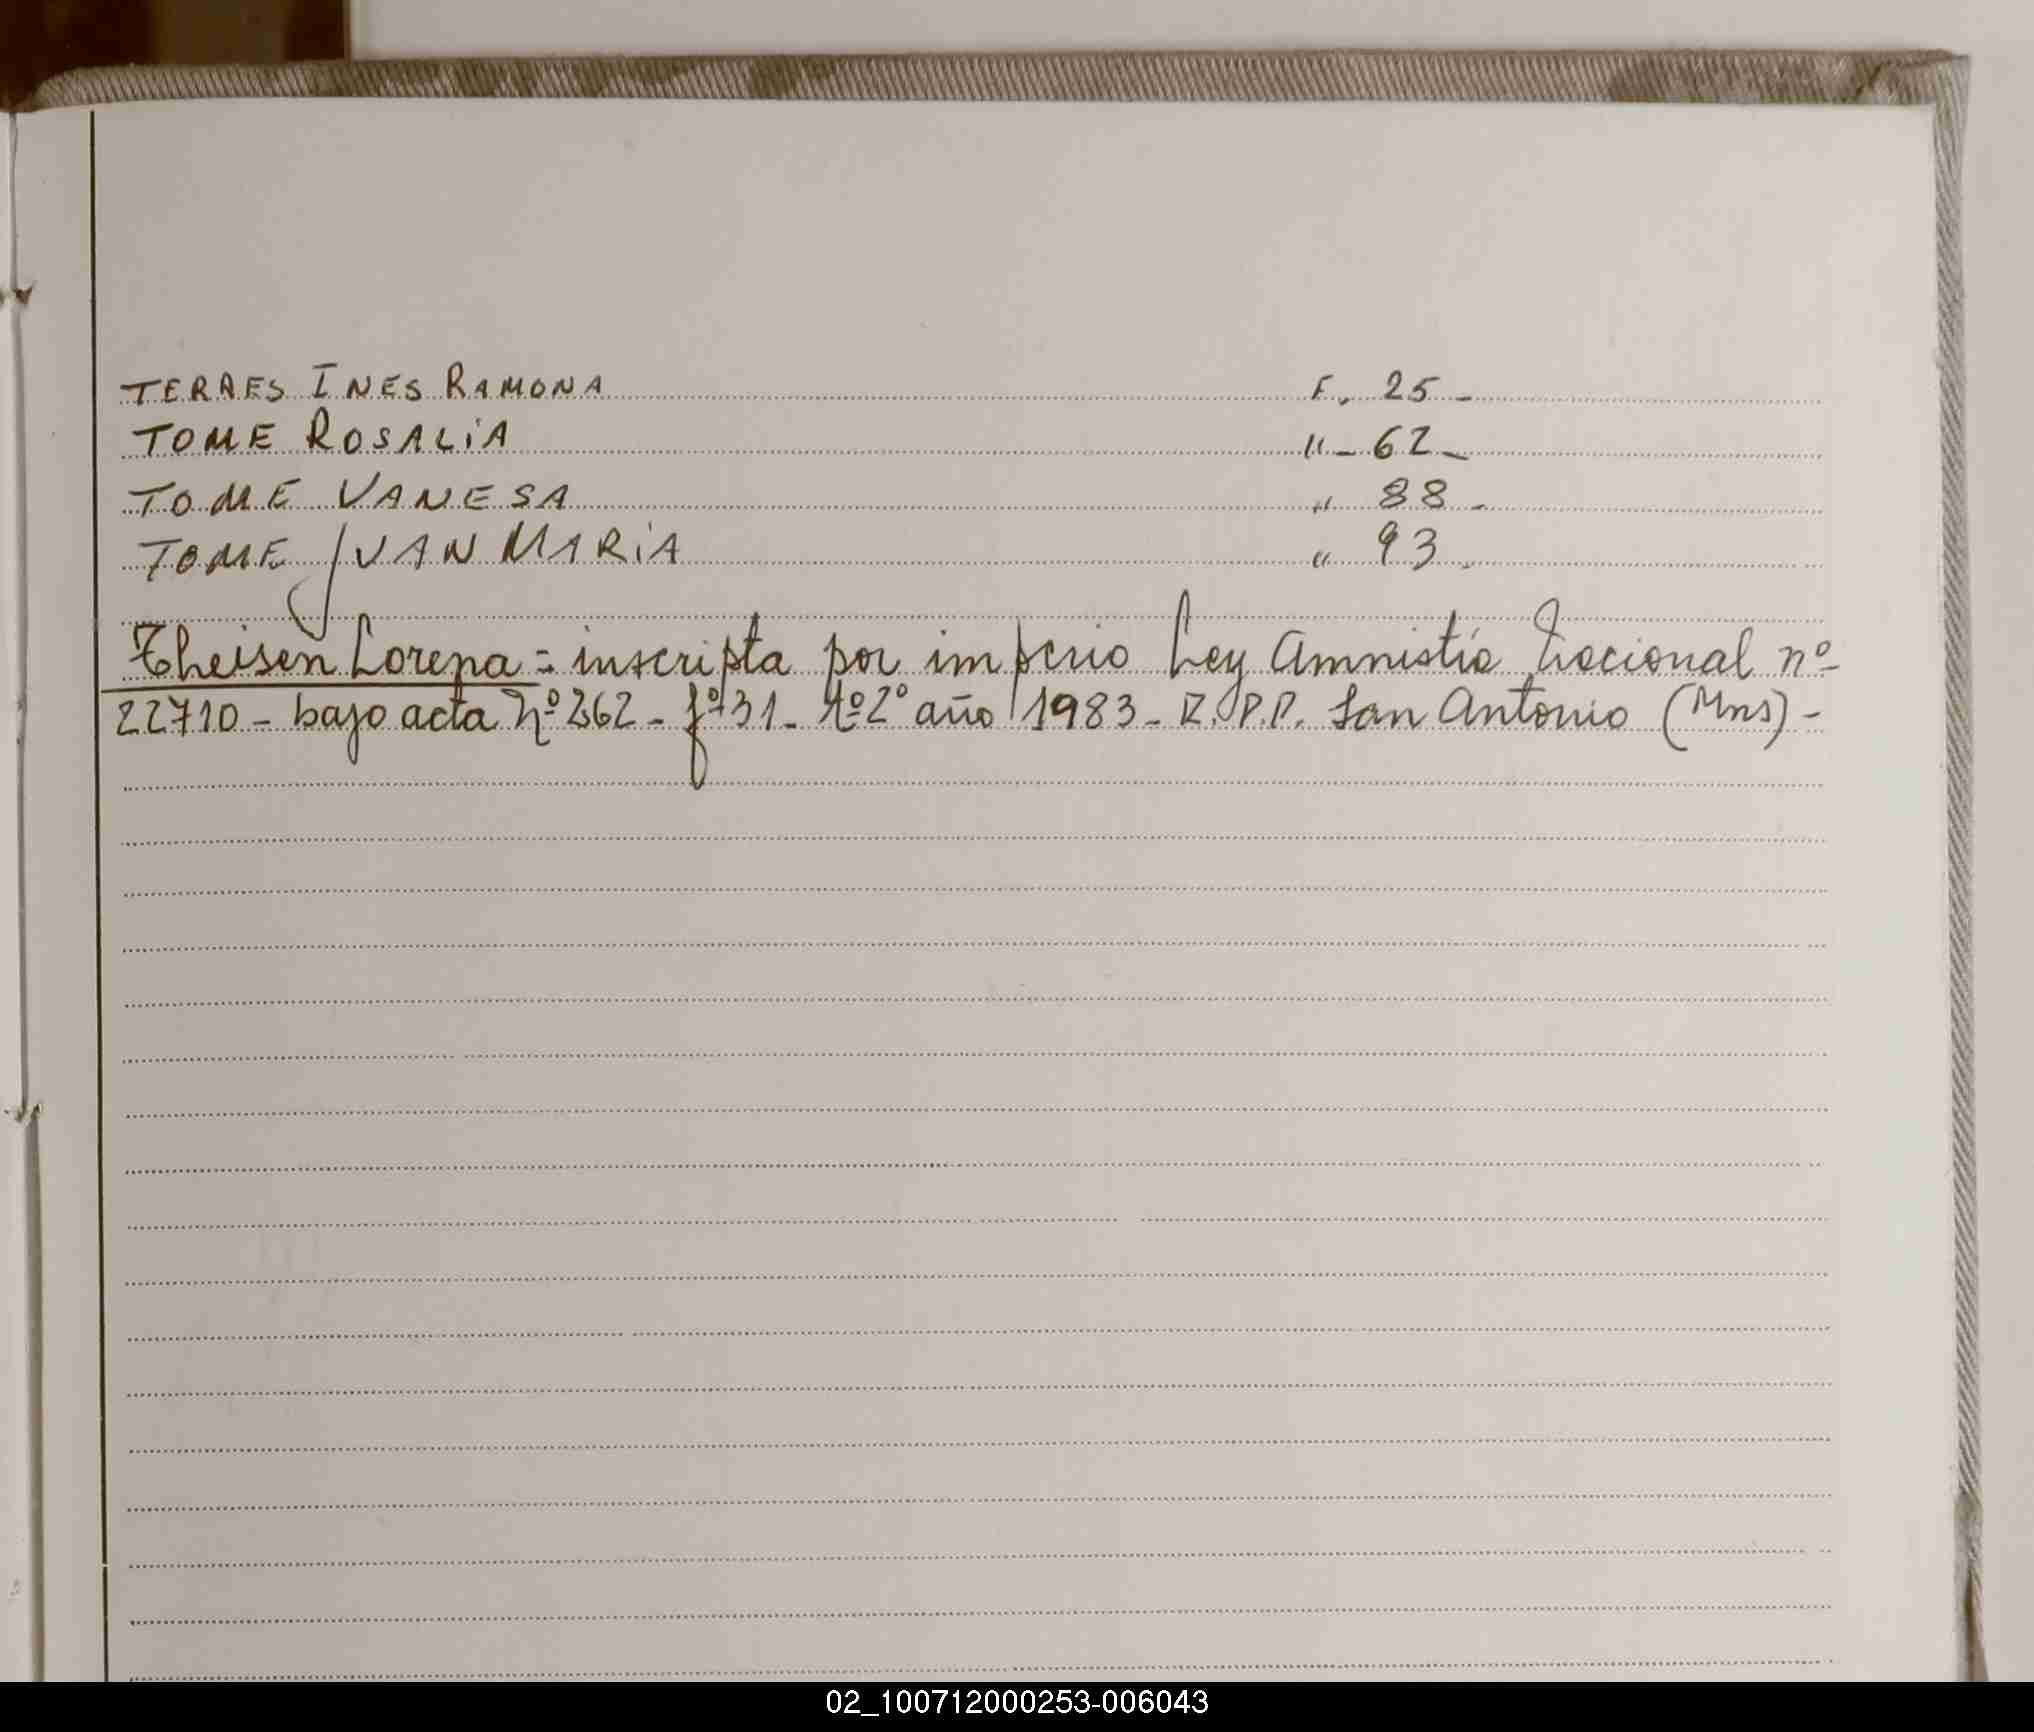 TERRES INES RAMONA F. 25 -
TOME ROSALIA " - 62 -
TOME VANESA " 88 -
TOME JUAN MARIA " 93 -
Theisen Lorena = inscripta por imperio Ley Amnistía Nacional nº
22710 - bajo acta Nº 262 - fº 31 - tº 2º año 1983 - R.P.P. San Antonio (Mns) -
02_100712000253-006043